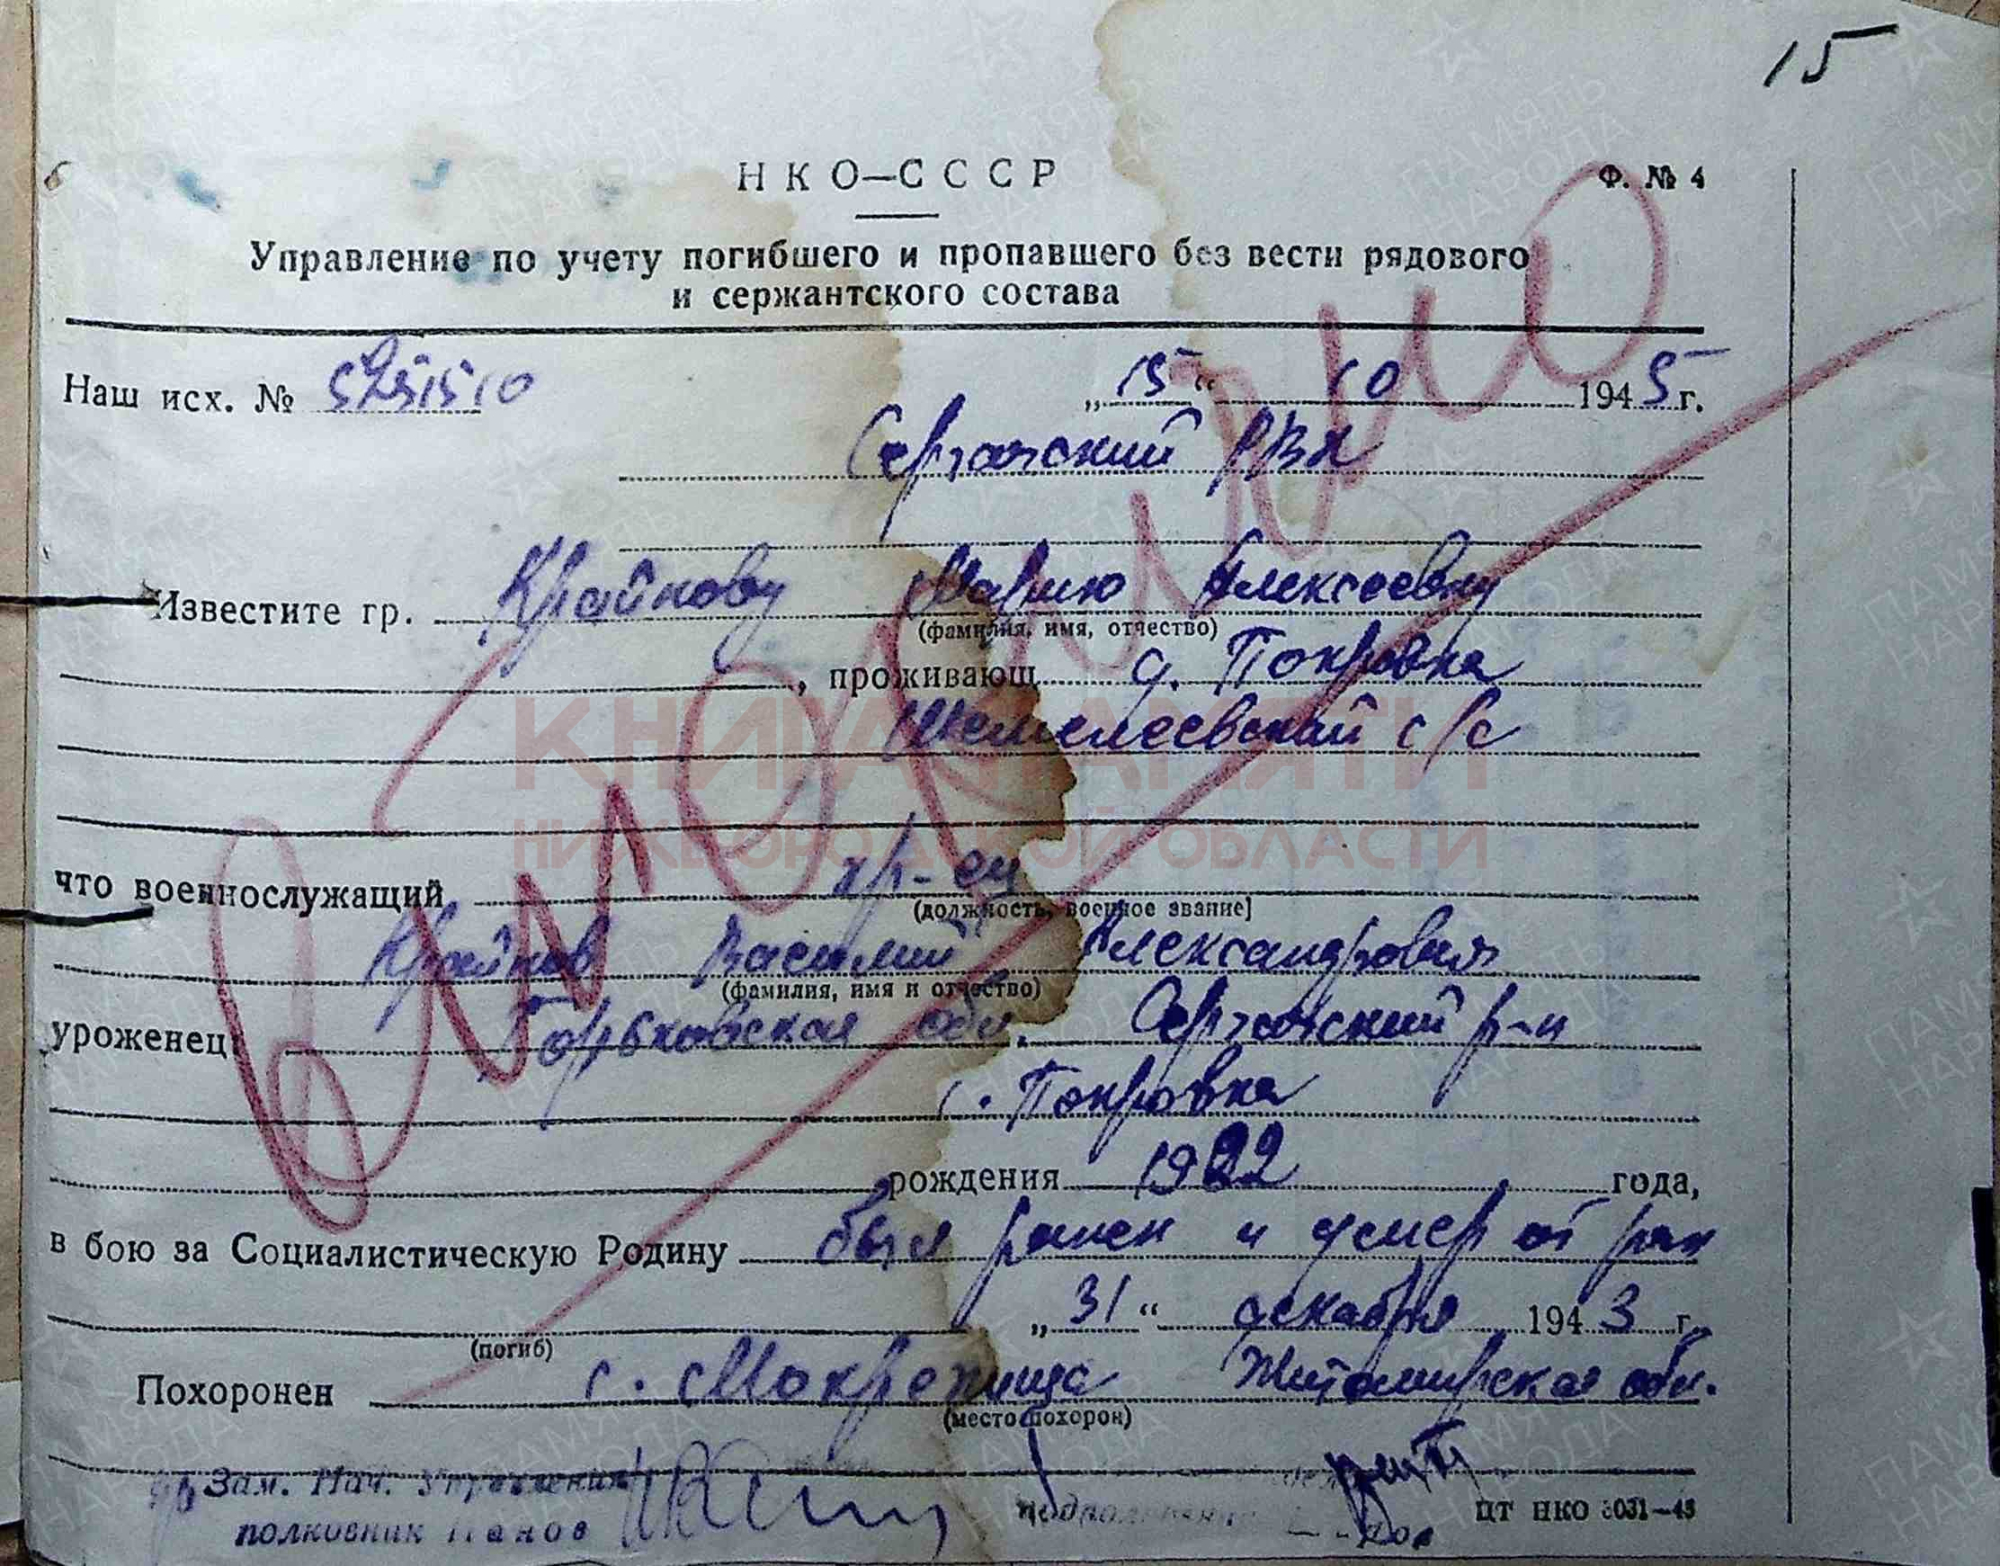 15
НКО—СССР
Ф. № 4
Управление по учету погибшего и пропавшего без вести рядового
и сержантского состава
Наш исх. № „15“ 10 1945 г.
Сергачский РВК
Известите гр. Крайнову Марию Алексеевну
(фамилия, имя, отчество)
, проживающ. д. Покровка
Шемелеевский с/с
КНИГА ПАМЯТИ
НИЖЕГОРОДСКОЙ ОБЛАСТИ
что военнослужащий кр-ец
(должность, военное звание)
Крайнов Василий Александрович
(фамилия, имя и отчество)
уроженец Горьковская обл. Сергачский р-н
с. Покровка
рождения 1922 года,
в бою за Социалистическую Родину был ранен и умер от ран
„31“ декабря 1943 г.
(погиб)
Похоронен с. Житомирская обл.
(место похорон)
Зам. Нач. Управления
полковник Панов
ЦТ НКО 3031—43
ПАМЯТЬ НАРОДА